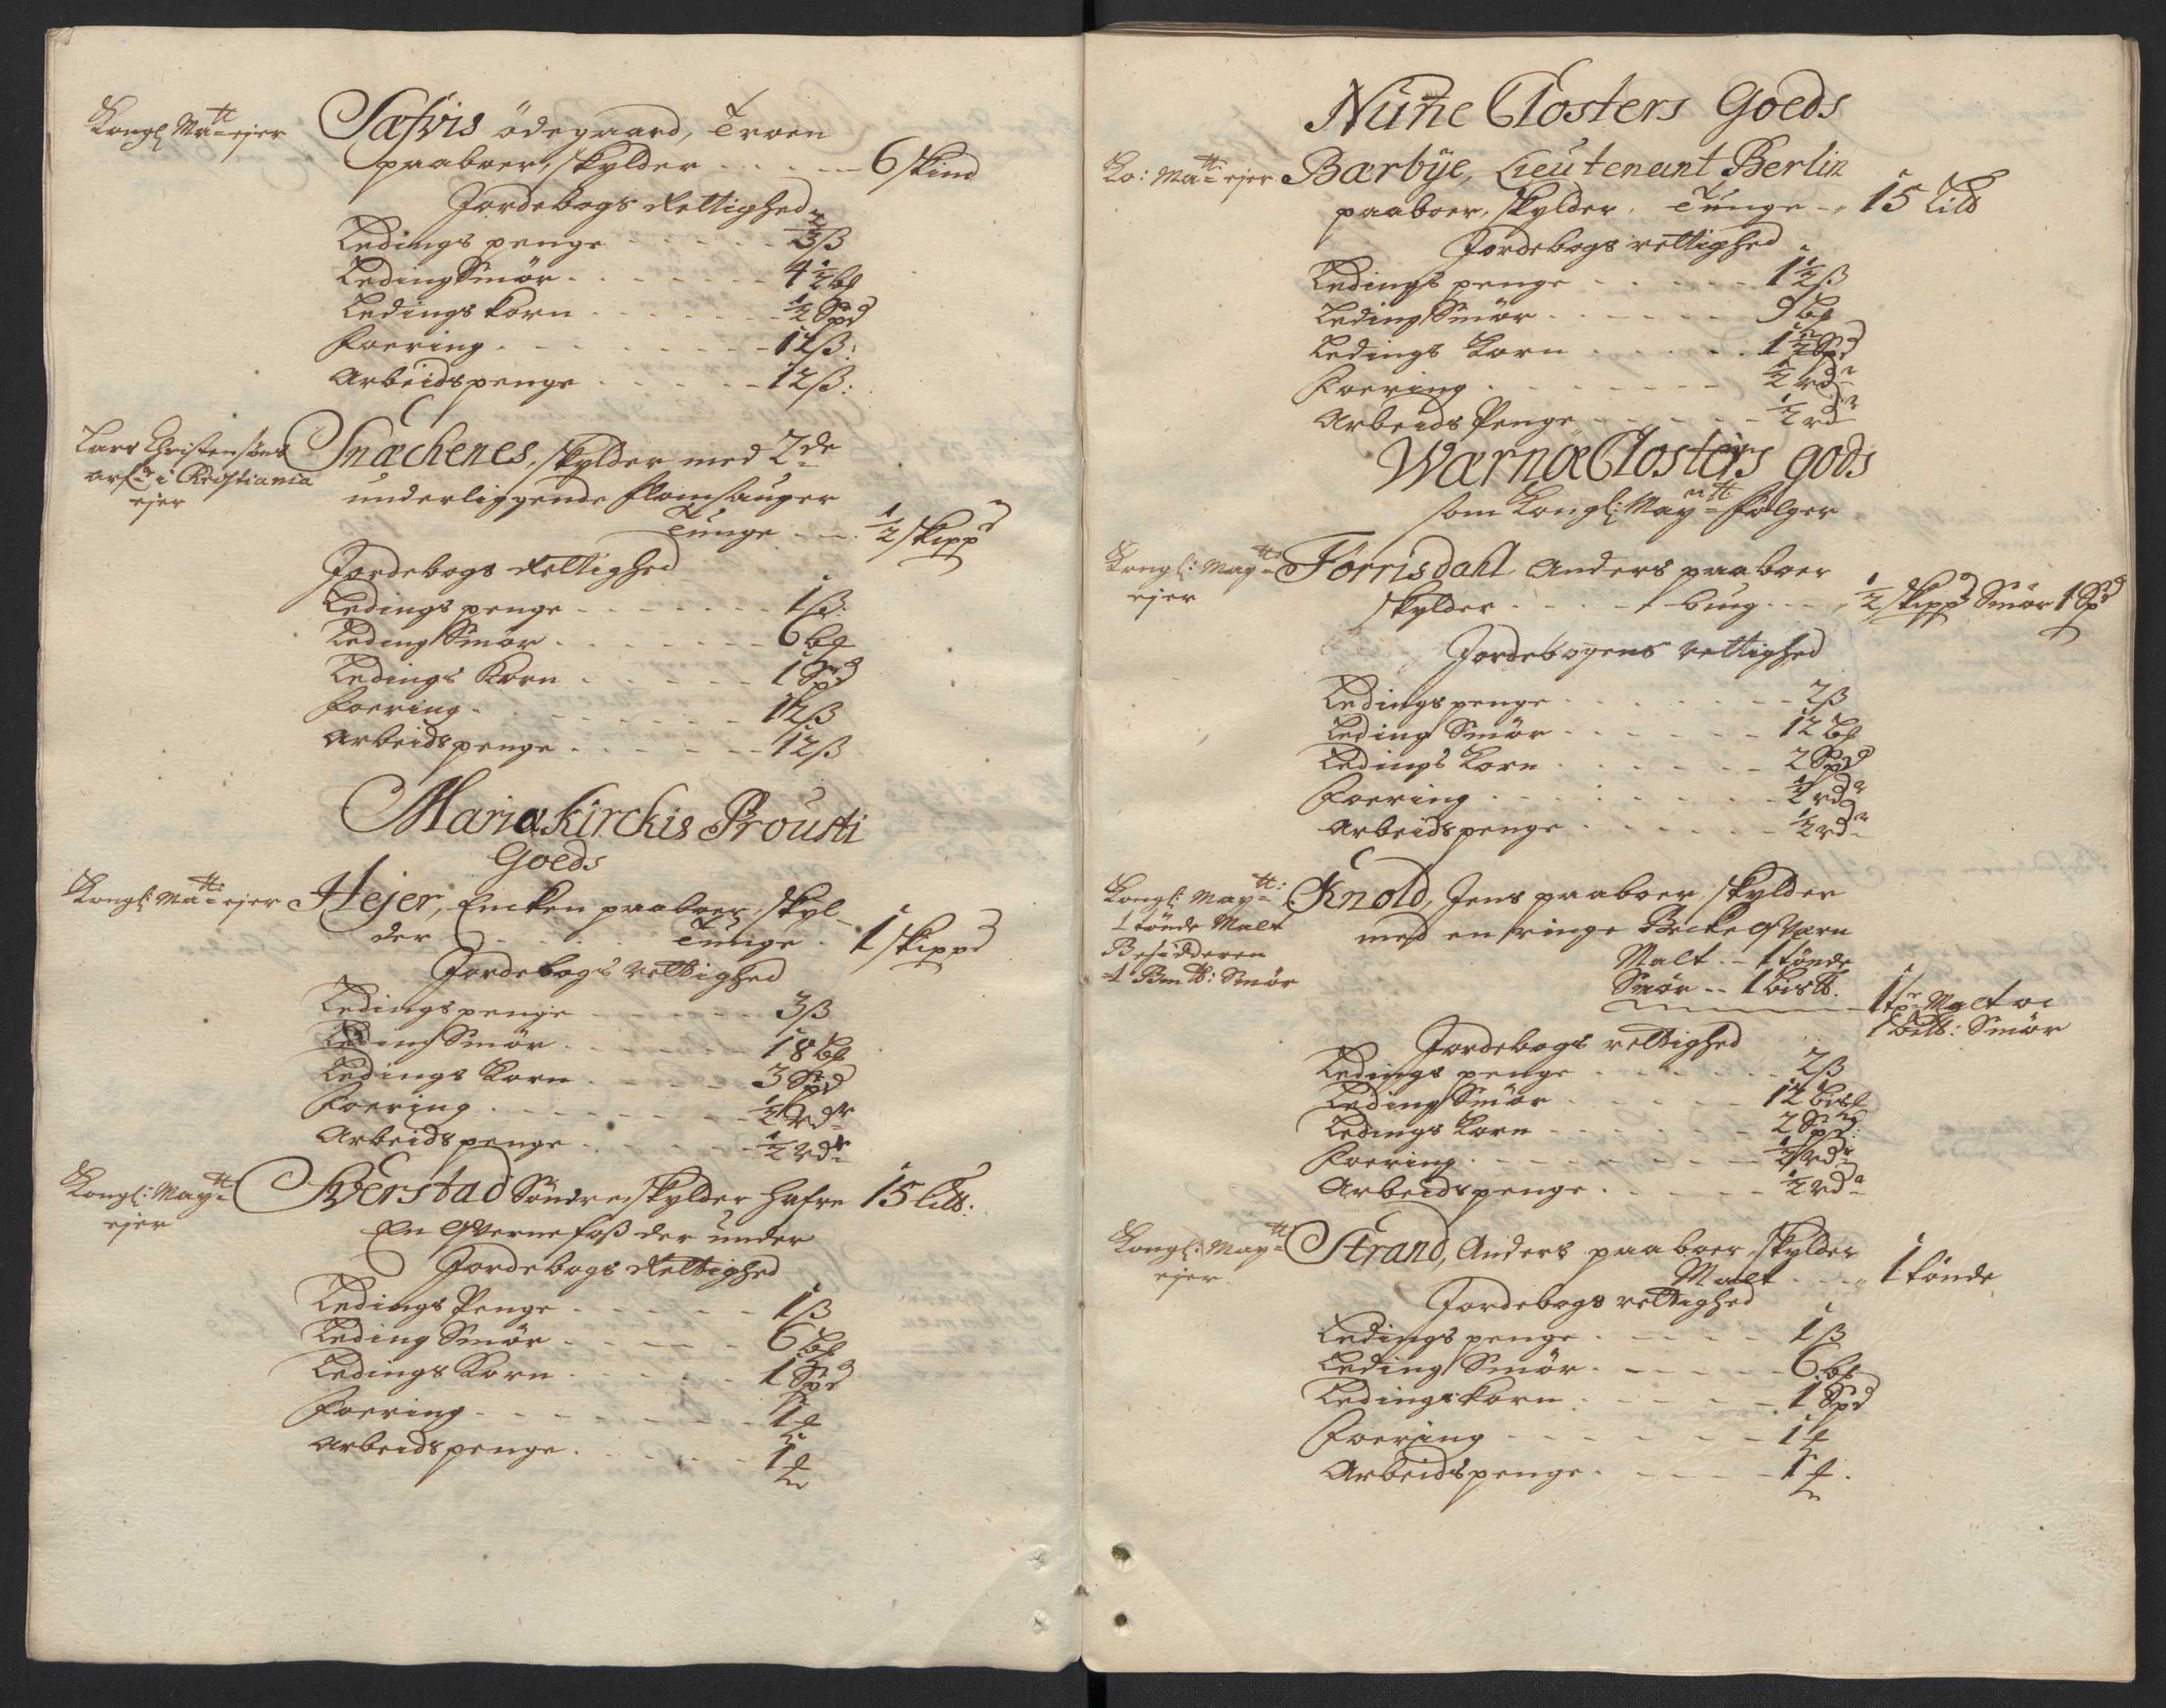 Kongl Ma<sup>tt</sup> ejer
Sæfvis ödegaard, Troen
paaboer, skylder - - - - 6 skind
Jordebogs Rettighed
Ledings penge - - - - - 2/3 ß
Leding Smör - - - - - 4 1/2 bl
Ledings korn - - - - - 1/2 Spd
Foering - - - - - - 12 ß:
Arbeids penge - - - - - 12 ß:
Lars Christensöns
arf. i Christiania
ejer
Snæchenes, skylder med 2de
underliggende flomsauger
Tunge - - - 1/2 skippd
Jordebogs Rettighed
Ledings penge - - - - - 1 ß
Leding Smör - - - - - 6 bl
Ledings Korn - - - - - 1 Spd
Foering - - - - - - 12 ß
Arbeids penge - - - - - 12 ß
Mariæ Kirckis Prousti
Goeds
Kongl: Ma<sup>tt</sup>: ejer
Hejer, Encken paaboer, skyl-
der - - - - Tunge - 1 skippd
Jordebogs rettighed
Ledings penge - - - - - 3 ß
Leding Smör - - - - - 18 bl
Ledings Korn - - - - - 3 Spd
Foering - - - - - - 1/2 rdr
Arbeids penge - - - - - 1/2 rdr
Kongl: May<sup>tt</sup>
ejer
Sverstad Söndre, skylder hafre 15 Lill:
En Qvernefoss der under
Jordebogs Rettighed
Ledings Penge - - - - - 1 ß
Leding Smör - - - - - 6 bl
Ledings Korn - - - - - 1 Spd
Foering - - - - - - 1
Arbeids penge - - - - - 1
Nunne Closters Goeds
Ko: Ma<sup>tt</sup>: ejer
Bærbye, Lieutenant Berlin
paaboer, skylder, Tunge - 15 Lill
Jordebogs rettighed
Ledings penge - - - - - 1 1/2 ß
Leding Smör - - - - - 9 bl
Ledings Korn - - - - - 1 1/2 Spd
Foering - - - - - - 1/2 rdr
Arbeids Penge - - - - - 1/2 rdr
Wærnæ Closters gods
som Kongl: May<sup>tt</sup> fölger
Kongl: May<sup>tt</sup>
ejer
Forrisdahl, Anders paaboer
skylder - - - - - bug - - - 1/2 skippd Smör 1 Spd
Jordebogens rettighed
Ledings penge - - - - - 2 ß
Leding Smör - - - - - 12 bl
Ledings Korn - - - - - 2 Spd
Foering - - - - - - 1/2 rdr
Arbeids penge - - - - - 1/2 rdr
Kongl: May<sup>tt</sup>:
1 tönde Malt
Besidderen
1 Bm tt: Smör
Knold, Jens paaboer, skylder
med en ringe Becke Qværn
Malt - - 1 tönde
Smör - - 1 bis tt.
1 tr Malt oc
1 bitt: Smör
Jordebogs rettighed
Ledings penge - - - - - 2 ß
Leding Smör - - - - - 12 bisl
Ledings Korn - - - - - 2 Spd:
Foering - - - - - - 1/2 rdr
Arbeids penge - - - - - 1/2 rdr
Kongl: May<sup>tt</sup>
ejer
Strand, Anders paaboer, skylder
Malt - - - 1 tönde
Jordebogs rettighed
Ledings penge - - - - - 1 ß
Leding Smör - - - - - 6 bl
Ledings korn - - - - - 1 Spd
Foering - - - - - - 1
Arbeids penge - - - - - 1